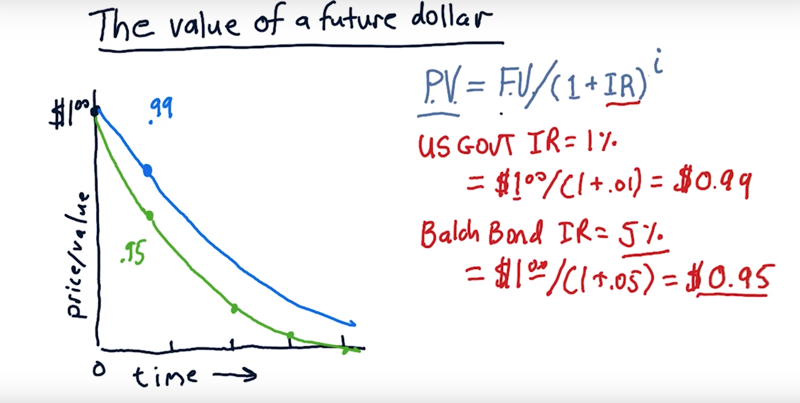 The value of a future dollar
$1⁰⁰
.99
.95
price/value
0
time →
P.V. = F.V/(1+IR)ⁱ
US GOVT IR = 1%
= $1⁰⁰/(1+.01) = $0.99
Balch Bond IR = 5%
= $1⁰⁰/(1+.05) = $0.95